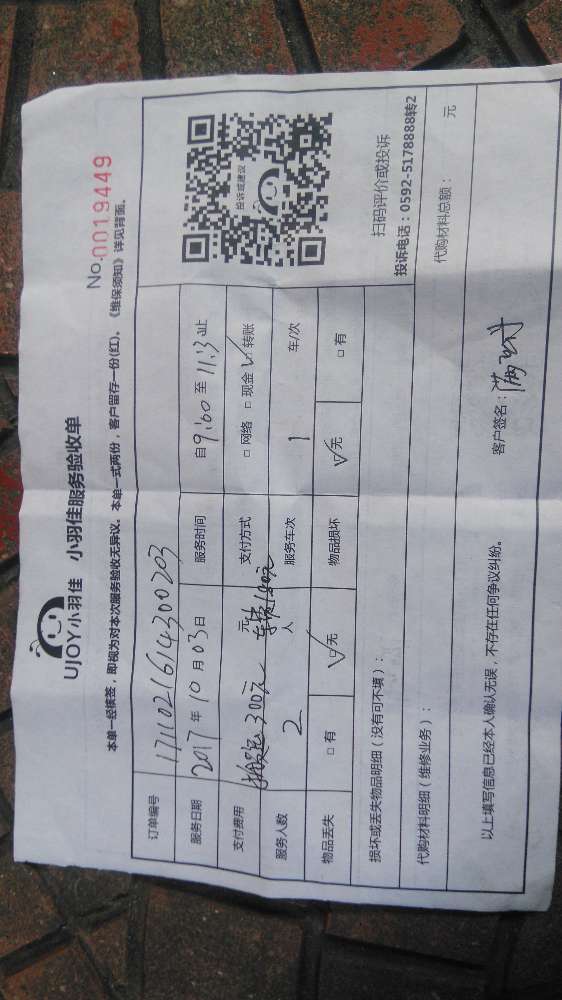 UJOY小羽佳 小羽佳服务验收单
No.0019449
本单一经核签，即视为对本次服务验收无异议。本单一式两份，客户留存一份(红)。《维保须知》详见背面。
订单编号 171102161430 0203
服务日期 2017年10月03日 服务时间 自9:00至11:13止
支付费用 300元 元 支付方式 □网络 □现金 ☑转账
服务人数 2 人 服务车次 1 车/次
物品丢失 □有 ☑无 物品损坏 ☑无 □有
投诉或建议
扫码评价或投诉
投诉电话：0592-5178888转2
损坏或丢失物品明细（没有可不填）：
代购材料明细（维修业务）：
代购材料总额： 元
以上填写信息已经本人确认无误，不存在任何争议纠纷。
客户签名：